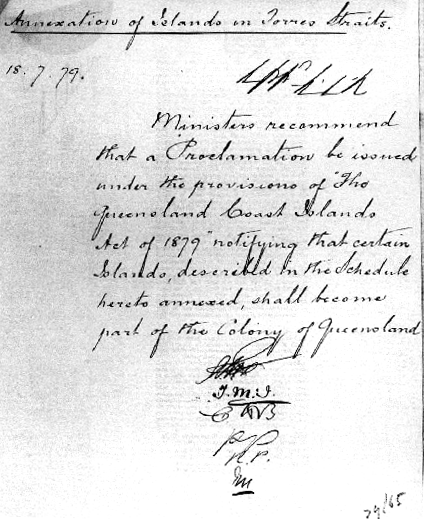 Annexation of Islands in Torres Straits.
18.7.79.
Ministers recommend
that a Proclamation be issued
under the provisions of "The
Queensland Coast Islands
Act of 1879" notifying that certain
Islands, described in the Schedule
hereto annexed, shall become
part of the Colony of Queensland
J.M.T.
79/65